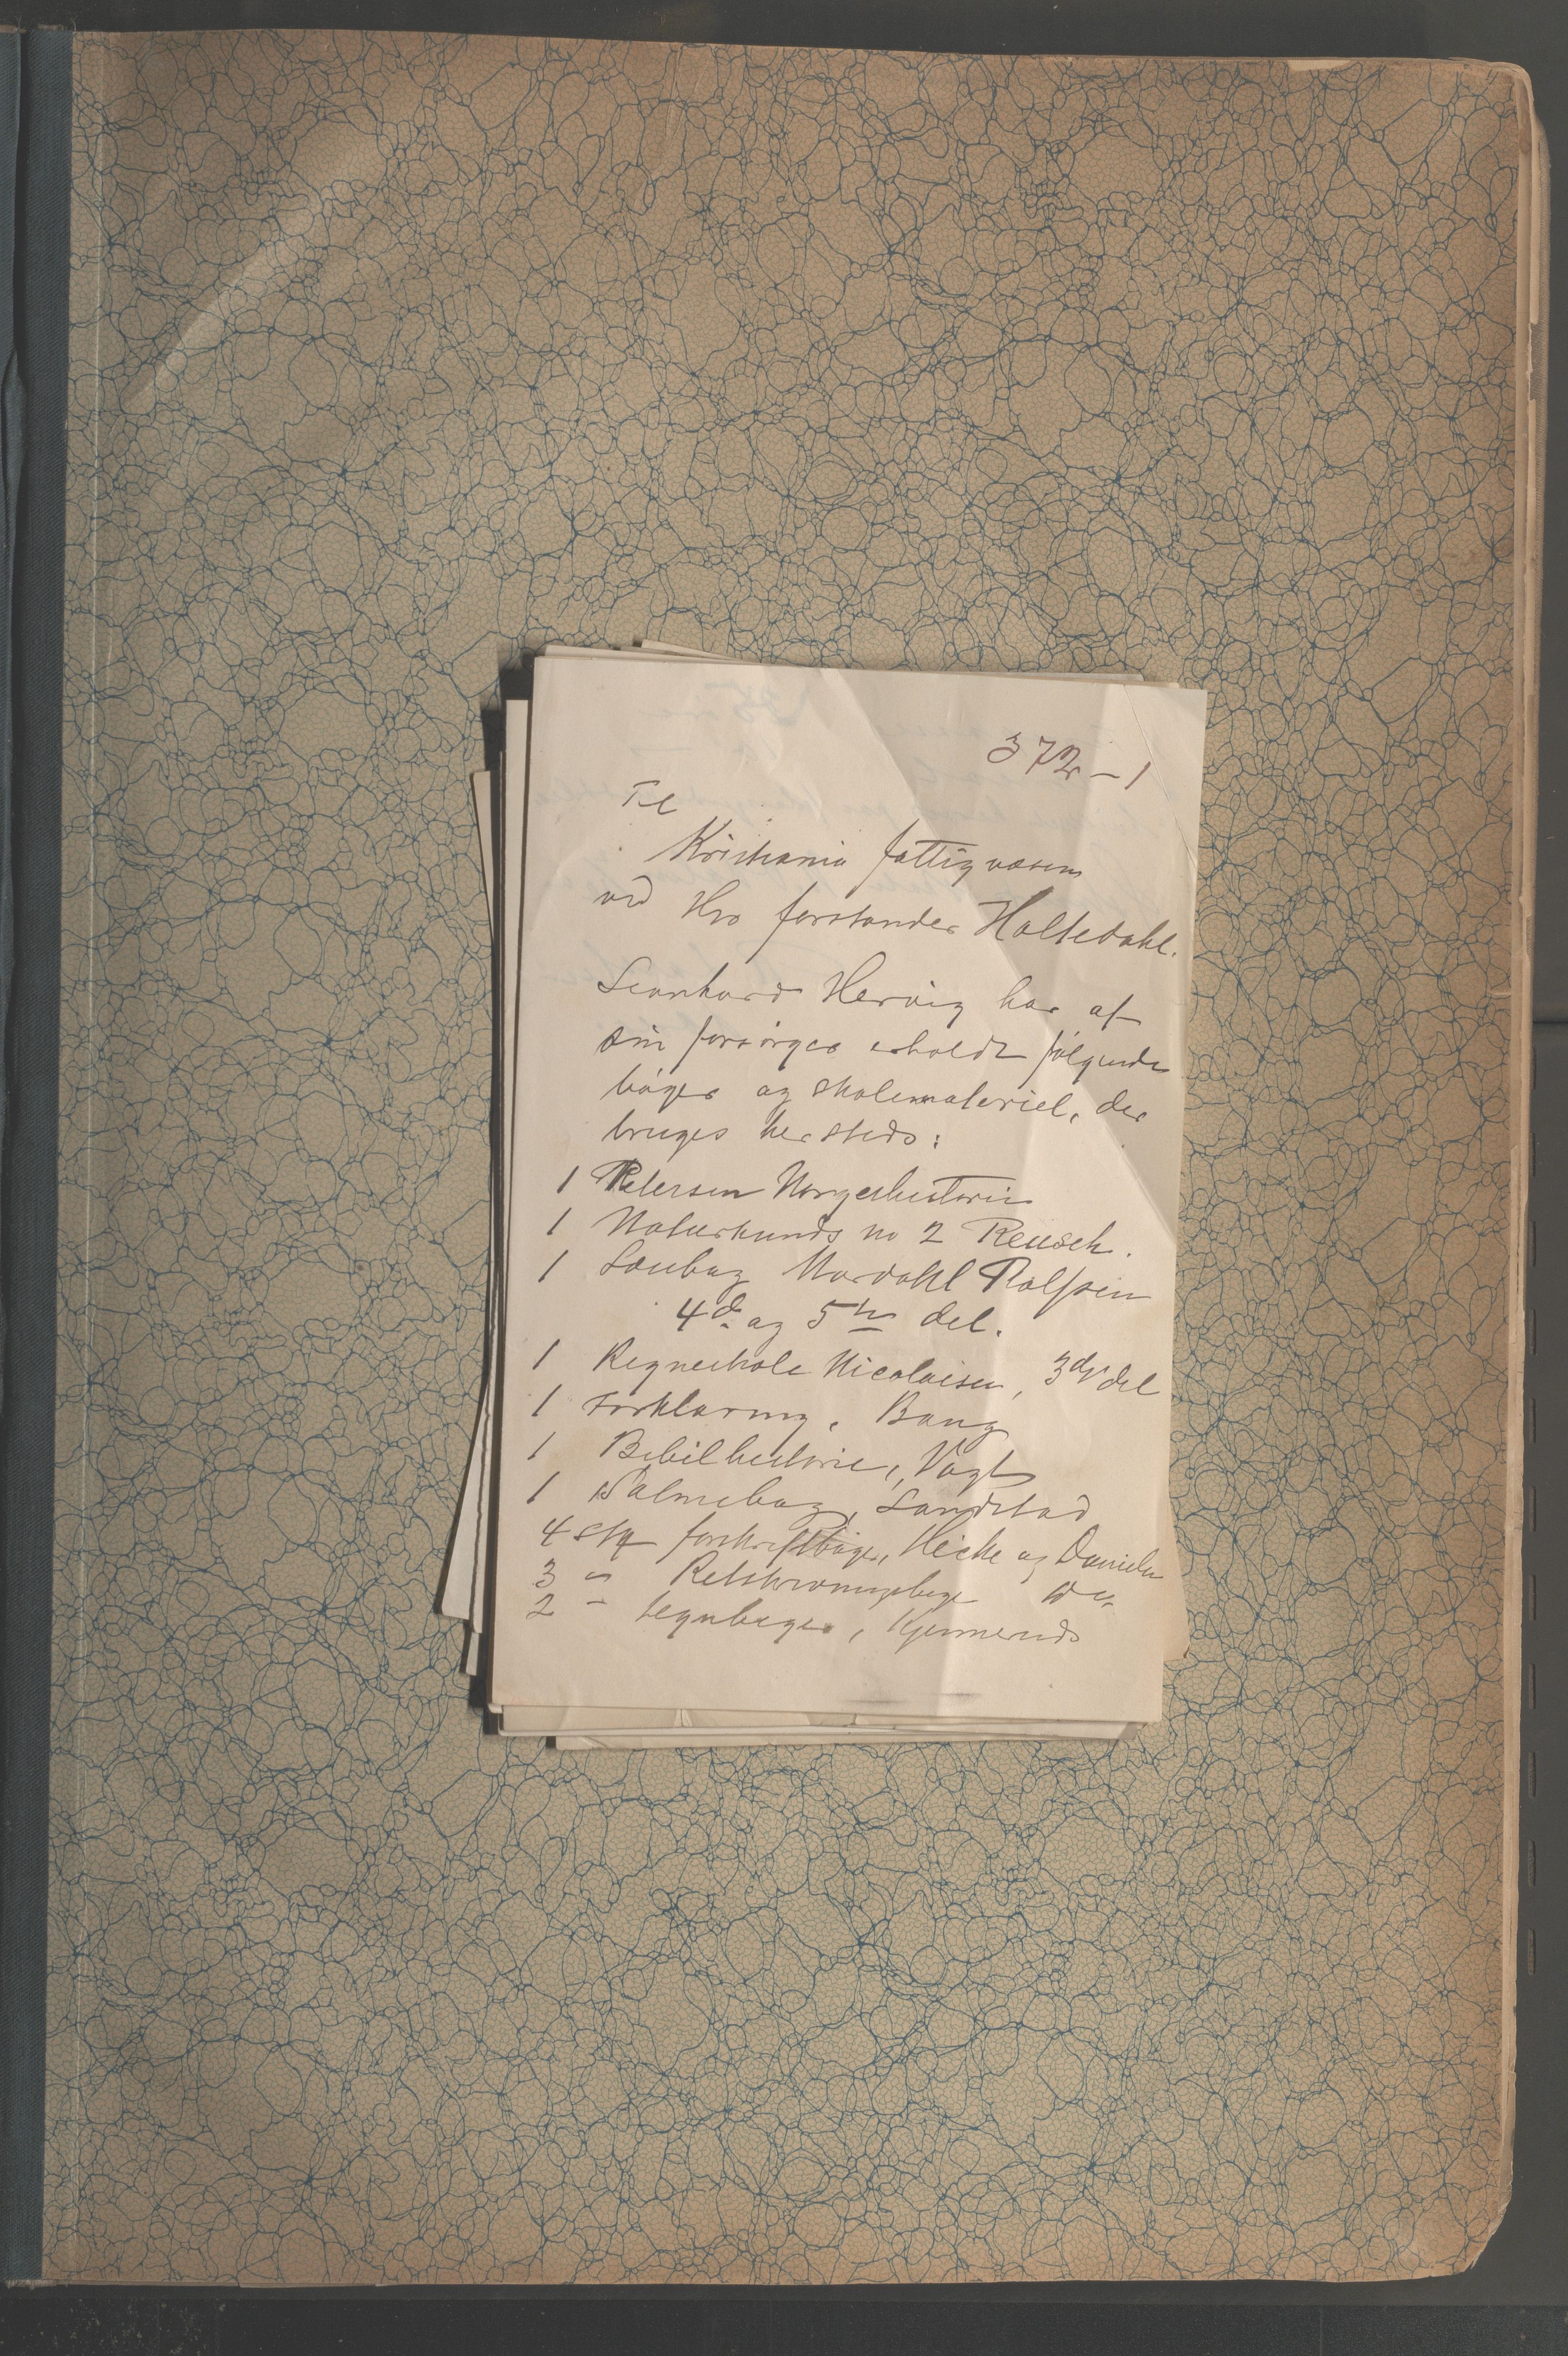 372 - 1
Til
Kristiania fattigvæsen
ved Hr. forstander Holtedahl.
Leonhard Hervig har af
sin forsørger erholdt følgende
bøger og skolemateriel, der
bruges hersteds:
1 Petersen Norgeshistorie
1 Naturkunds no 2 Reusch.
1 Læsebog Nordahl Rolfsen
4de og 5te del.
1 Regneskole Nicolaisen, 3die del
1 Forklaring, Bang
1 Bibelhistorie, Vogt
1 Salmebog, Landstad
4 stk forskriftbøger, og
3 " Retskrivningsbøger
2 " tegnbøger,